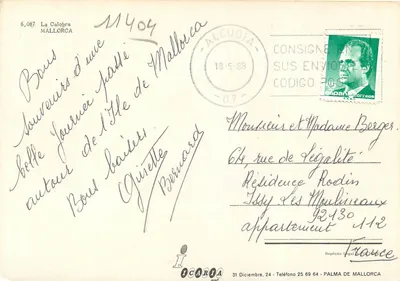 6.087 La Calobra
MALLORCA
11404
Bons
souvenirs d'une
belle journée passé
autour de l'Ile de Mallorca
Bons baisers
Ginette
Bernard
ALCUDIA
18-5-89
07
CONSIGNE
SUS ENVIO
CODIGO PO
Monsieur et Madame Berger
64, rue de l'égalité
Résidence Rodin
Issy Les Moulineaux
92130
appartement 112
France
OCAROA
31 Diciembre, 24 - Teléfono 25 69 64 - PALMA DE MALLORCA